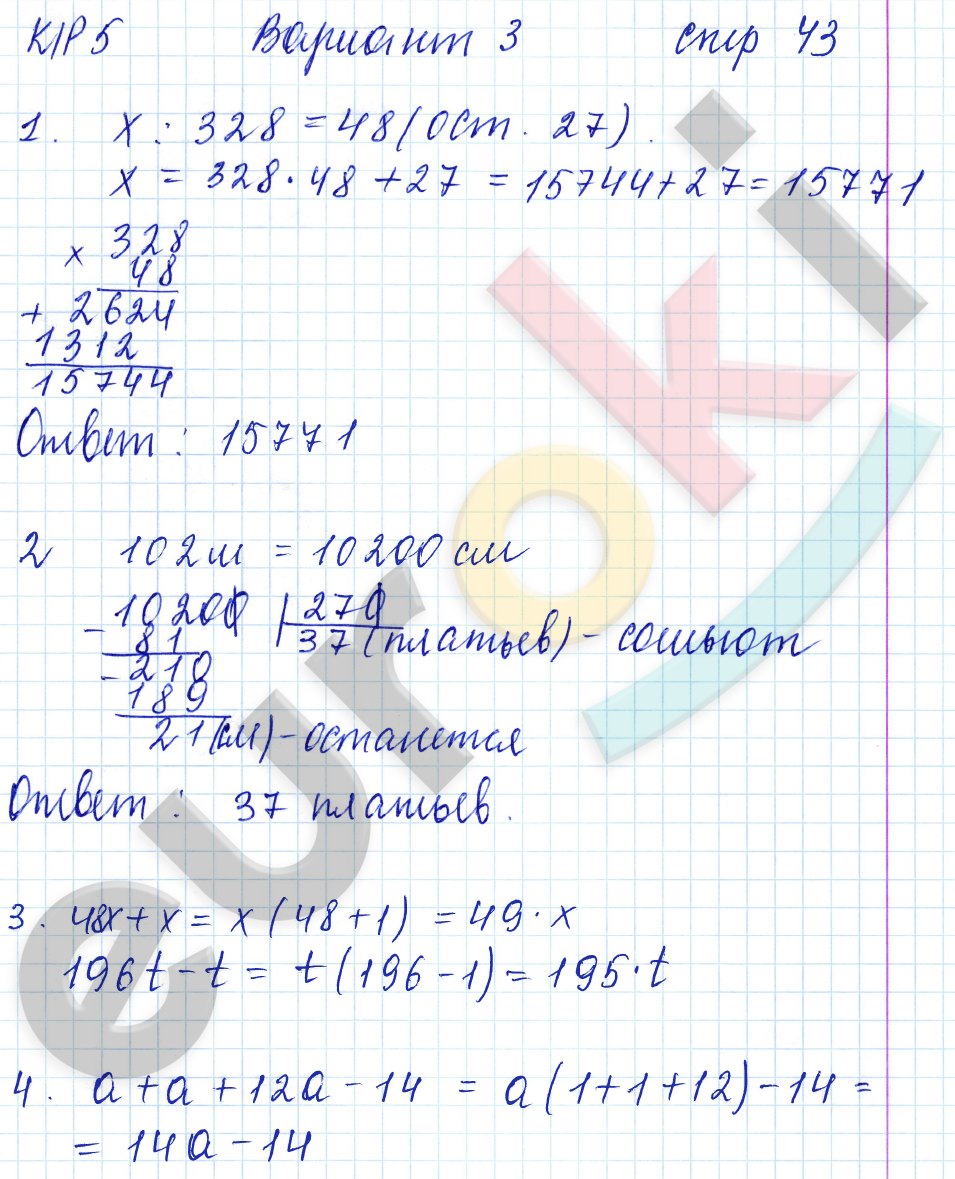 К/Р 5 Вариант 3 стр 43
1. x : 328 = 48 (ост. 27).
x = 328 · 48 + 27 = 15744 + 27 = 15771
x 328
48
+ 2624
1312
15744
Ответ : 15771
2 102 м = 10200 см
- 10200 | 270
81 37 (платьев) - сошьют
- 210
189
21 (см) - останется
Ответ : 37 платьев.
3. 48x + x = x (48 + 1) = 49 · x
196t - t = t (196 - 1) = 195 · t
4. a + a + 12a - 14 = a (1 + 1 + 12) - 14 =
= 14a - 14
euroki